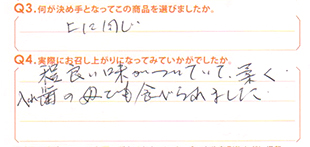 Q3.何が決め手となってこの商品を選びましたか。
上に同じ
Q4.実際にお召し上がりになってみていかがでしたか。
程良い味がついていて、柔く
入れ歯の母でも食べられました